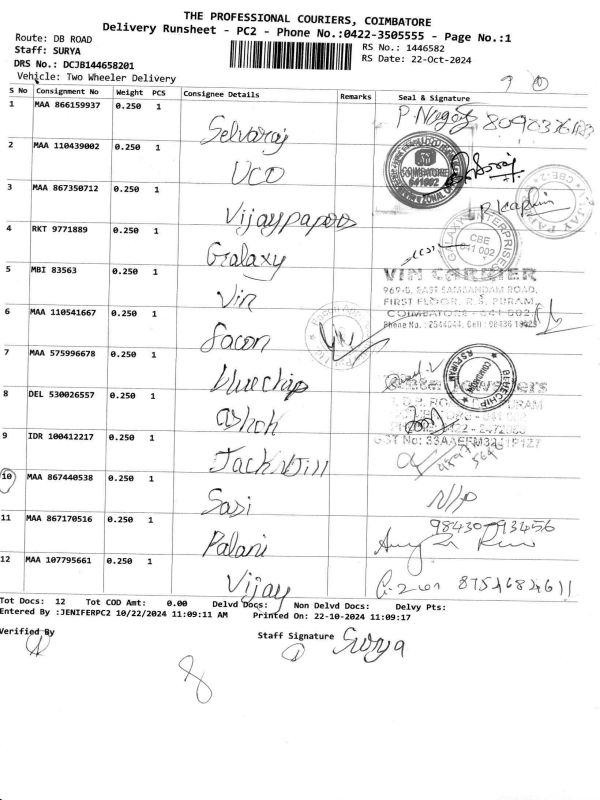 THE PROFESSIONAL COURIERS, COIMBATORE
Delivery Runsheet - PC2 - Phone No.:0422-3505555 - Page No.:1
Route: DB ROAD
RS No.: 1446582
Staff: SURYA
RS Date: 22-Oct-2024
DRS No.: DCJB144658201
Vehicle: Two Wheeler Delivery
S No Consignment No Weight PCS Consignee Details Remarks Seal & Signature
1 MAA 866159937 0.250 1 Selvaraj
2 MAA 110439002 0.250 1 UCO
COIMBATORE
641002
3 MAA 867350712 0.250 1 Vijaypapoos
CBE-2
4 RKT 9771889 0.250 1 Galaxy
GALAXY ENTERPRISES
CBE
641 002
5 MBI 83563 0.250 1 Vin
VIN CARRIER
969-B, EAST SAMBANDAM ROAD,
FIRST FLOOR, R.S. PURAM,
COIMBATORE - 641 002.
6 MAA 110541667 0.250 1 Facon
7 MAA 575996678 0.250 1 bluechip
BLUECHIP
R.S.PURAM
COIMBATORE
8 DEL 530026557 0.250 1 ashok
9 IDR 100412217 0.250 1 Jack N Jill
10 MAA 867440538 0.250 1 Sasi
11 MAA 867170516 0.250 1 Palani
98430-93456
12 MAA 107795661 0.250 1 Vijay 8754682611
Tot Docs: 12 Tot COD Amt: 0.00 Delvd Docs: Non Delvd Docs: Delvy Pts:
Entered By :JENIFERPC2 10/22/2024 11:09:11 AM Printed On: 22-10-2024 11:09:17
Verified By
Staff Signature Surya